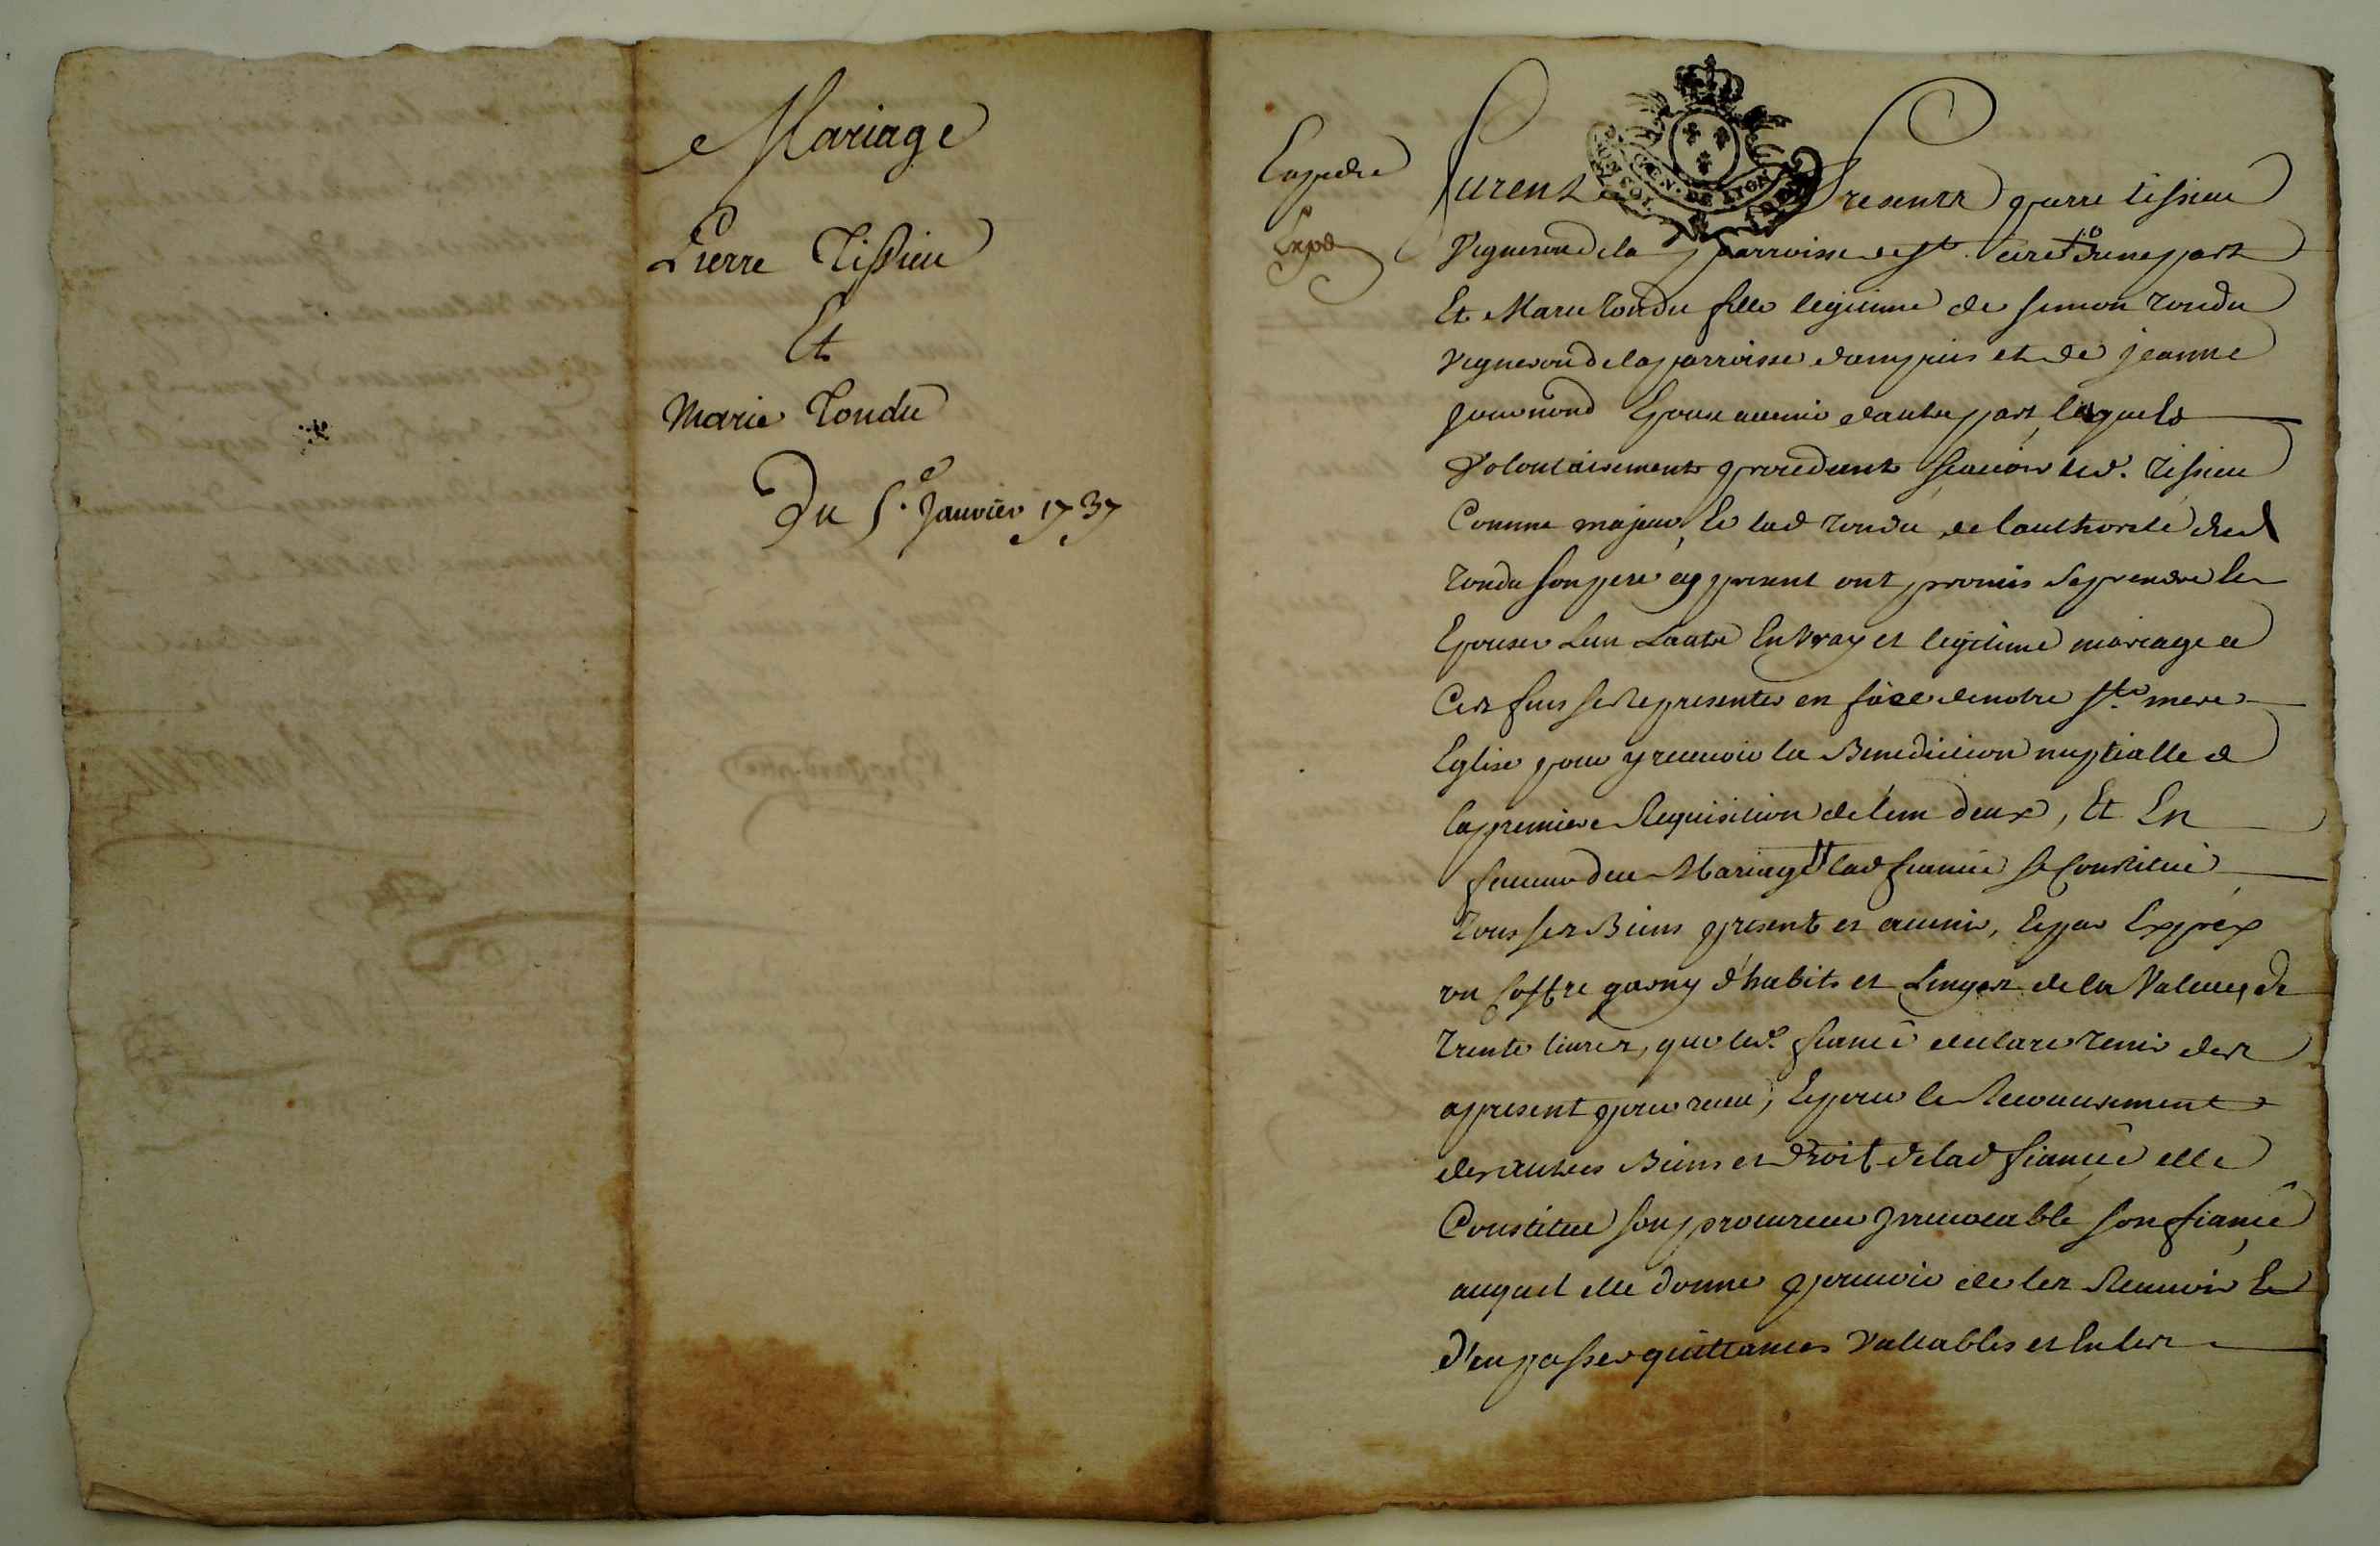 Mariage
Pierre Tissieu
Et
Marie Tondu
Du 5.e Janvier 1737
Expedie
Exped
Furent Presents pierre tissieu
GEN. DE LYON
Vigneron de la parroisse de st. d'une part
Et Marie tondu fille legitime de simon tondu
Vigneron de la parroisse dampuis et de jeanne
Epoux avenir d'autre part, lesquels
Volontairement procedants sçavoir led. tissieu
Comme majeur, Et lad tondu de l'authorité dud
tondu son pere ay present ont promis se prendre Et
Epouser L'un Lautre En Vray et legitime mariage a
Ces fins se Representer en face de notre ste mere
Eglise pour y recevoir la Benediction nuptialle a
la premiere Requisition de l'un deux, Et En
faveur du Mariage lad fiancée se Constitue
tous ses Biens present et avenir, Et par Exprex
un Coffre garny d'habits et Linges de la Valeur de
trente livres, que led. fiancé declare tenir des
apresent pour receu, Et pour le Recouvrement
des autres Biens et droit de lad fiancée elle
Constitue son procureur Irrevocable son fiancé
auquel elle donne pouvoir de les Recevoir Et
d'en passer quittances Vallables et En les